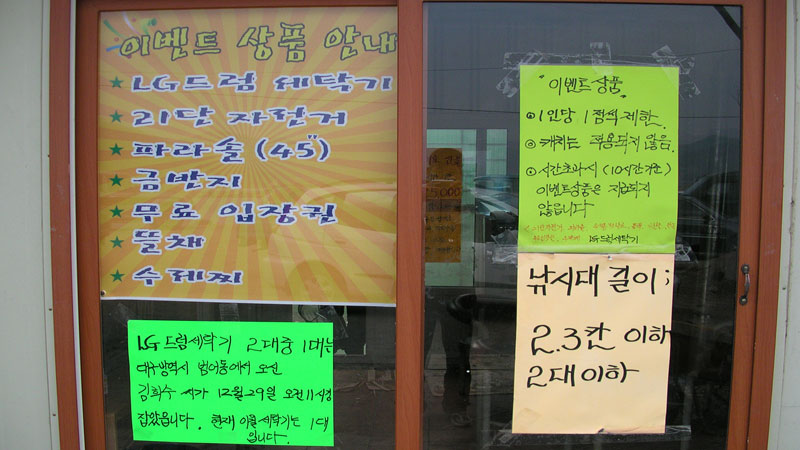 이벤트 상품 안내
★ LG드럼 세탁기
★ 리단 자전거
★ 파라솔 (45")
★ 금반지
★ 무료 입장권
★ 뜰채
★ 수제찌
LG드럼세탁기 2대중 1대는
대구광역시 범어동에서 오신
김희수 씨가 12월29일 오전11시경
잡았읍니다. 현재 이월세탁기는 1대
입니다.
"이벤트상품"
⊙ 1인당 1점씩 제한.
⊙ 캐치는 적용되지 않음.
⊙ 시간초과시 (10시간기준)
이벤트상품은 지급되지
않읍니다
LG드럼세탁기
낚시대 길이;
2.3칸 이하
2대이하